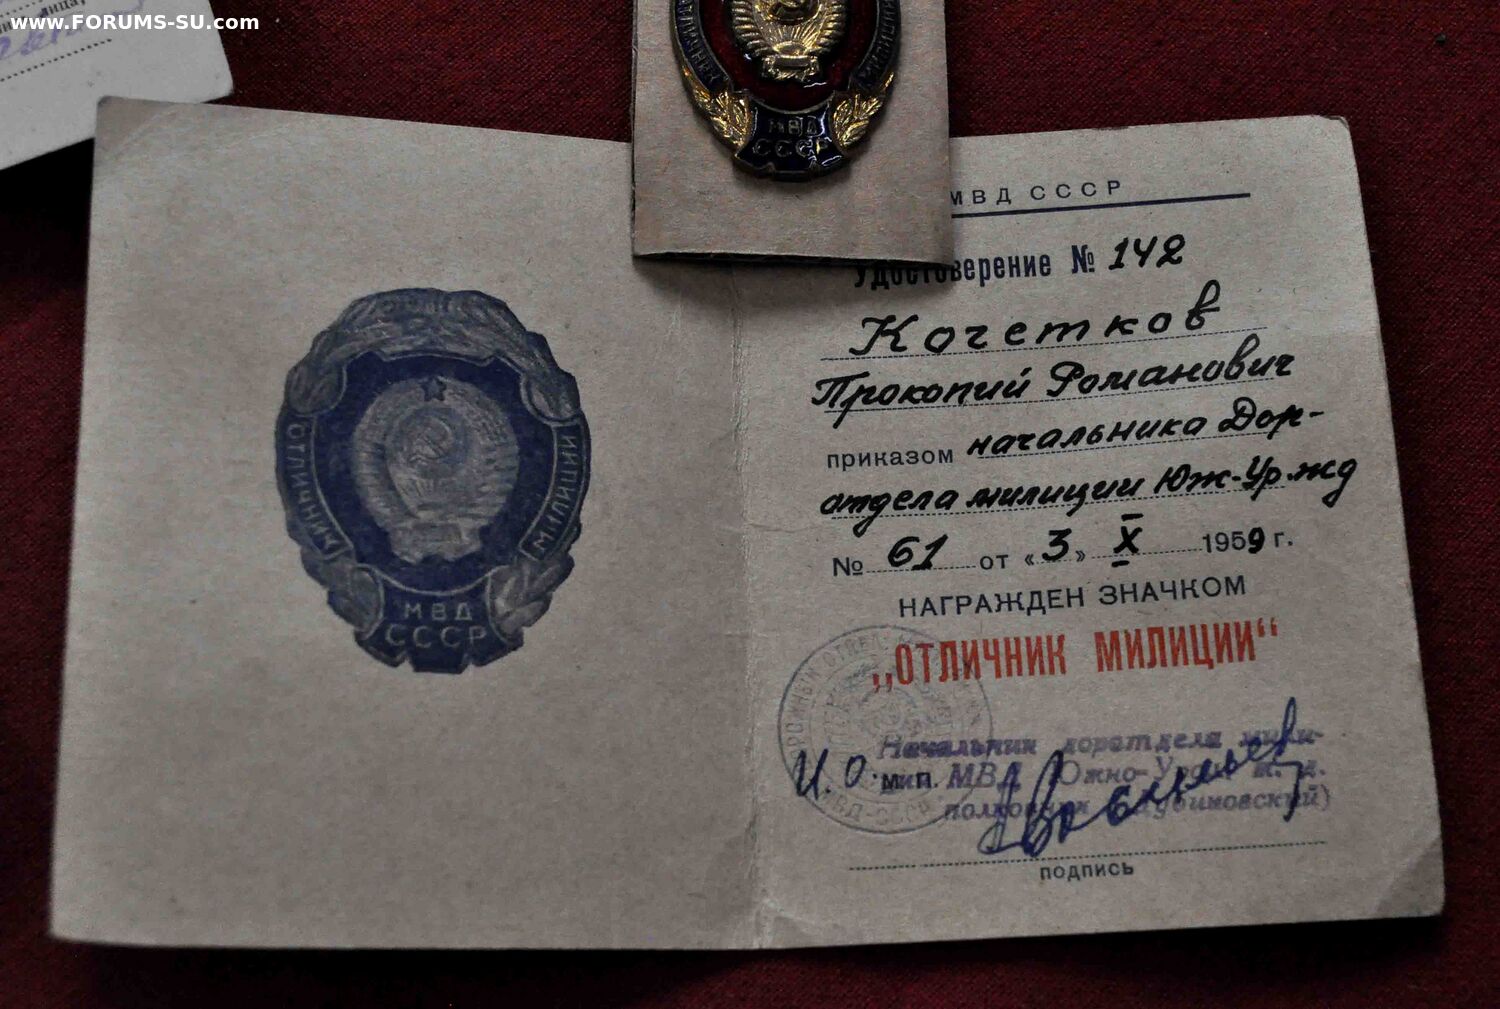 www.FORUMS-SU.com
лица,
МВД
СССР
ОТЛИЧНИК МИЛИЦИИ
МВД
СССР
МВД СССР
Удостоверение № 142
Кочетков
Прокопий Романович
приказом начальника Дор-
отдела милиции Юж-Ур.жд
№ 61 от «3» X 1959 г.
НАГРАЖДЕН ЗНАЧКОМ
„ОТЛИЧНИК МИЛИЦИИ“
Начальник доротдела мили-
И.О. М.П. ции МВД Южно-Урал. ж. д.
полковник Дубиновский)
подпись